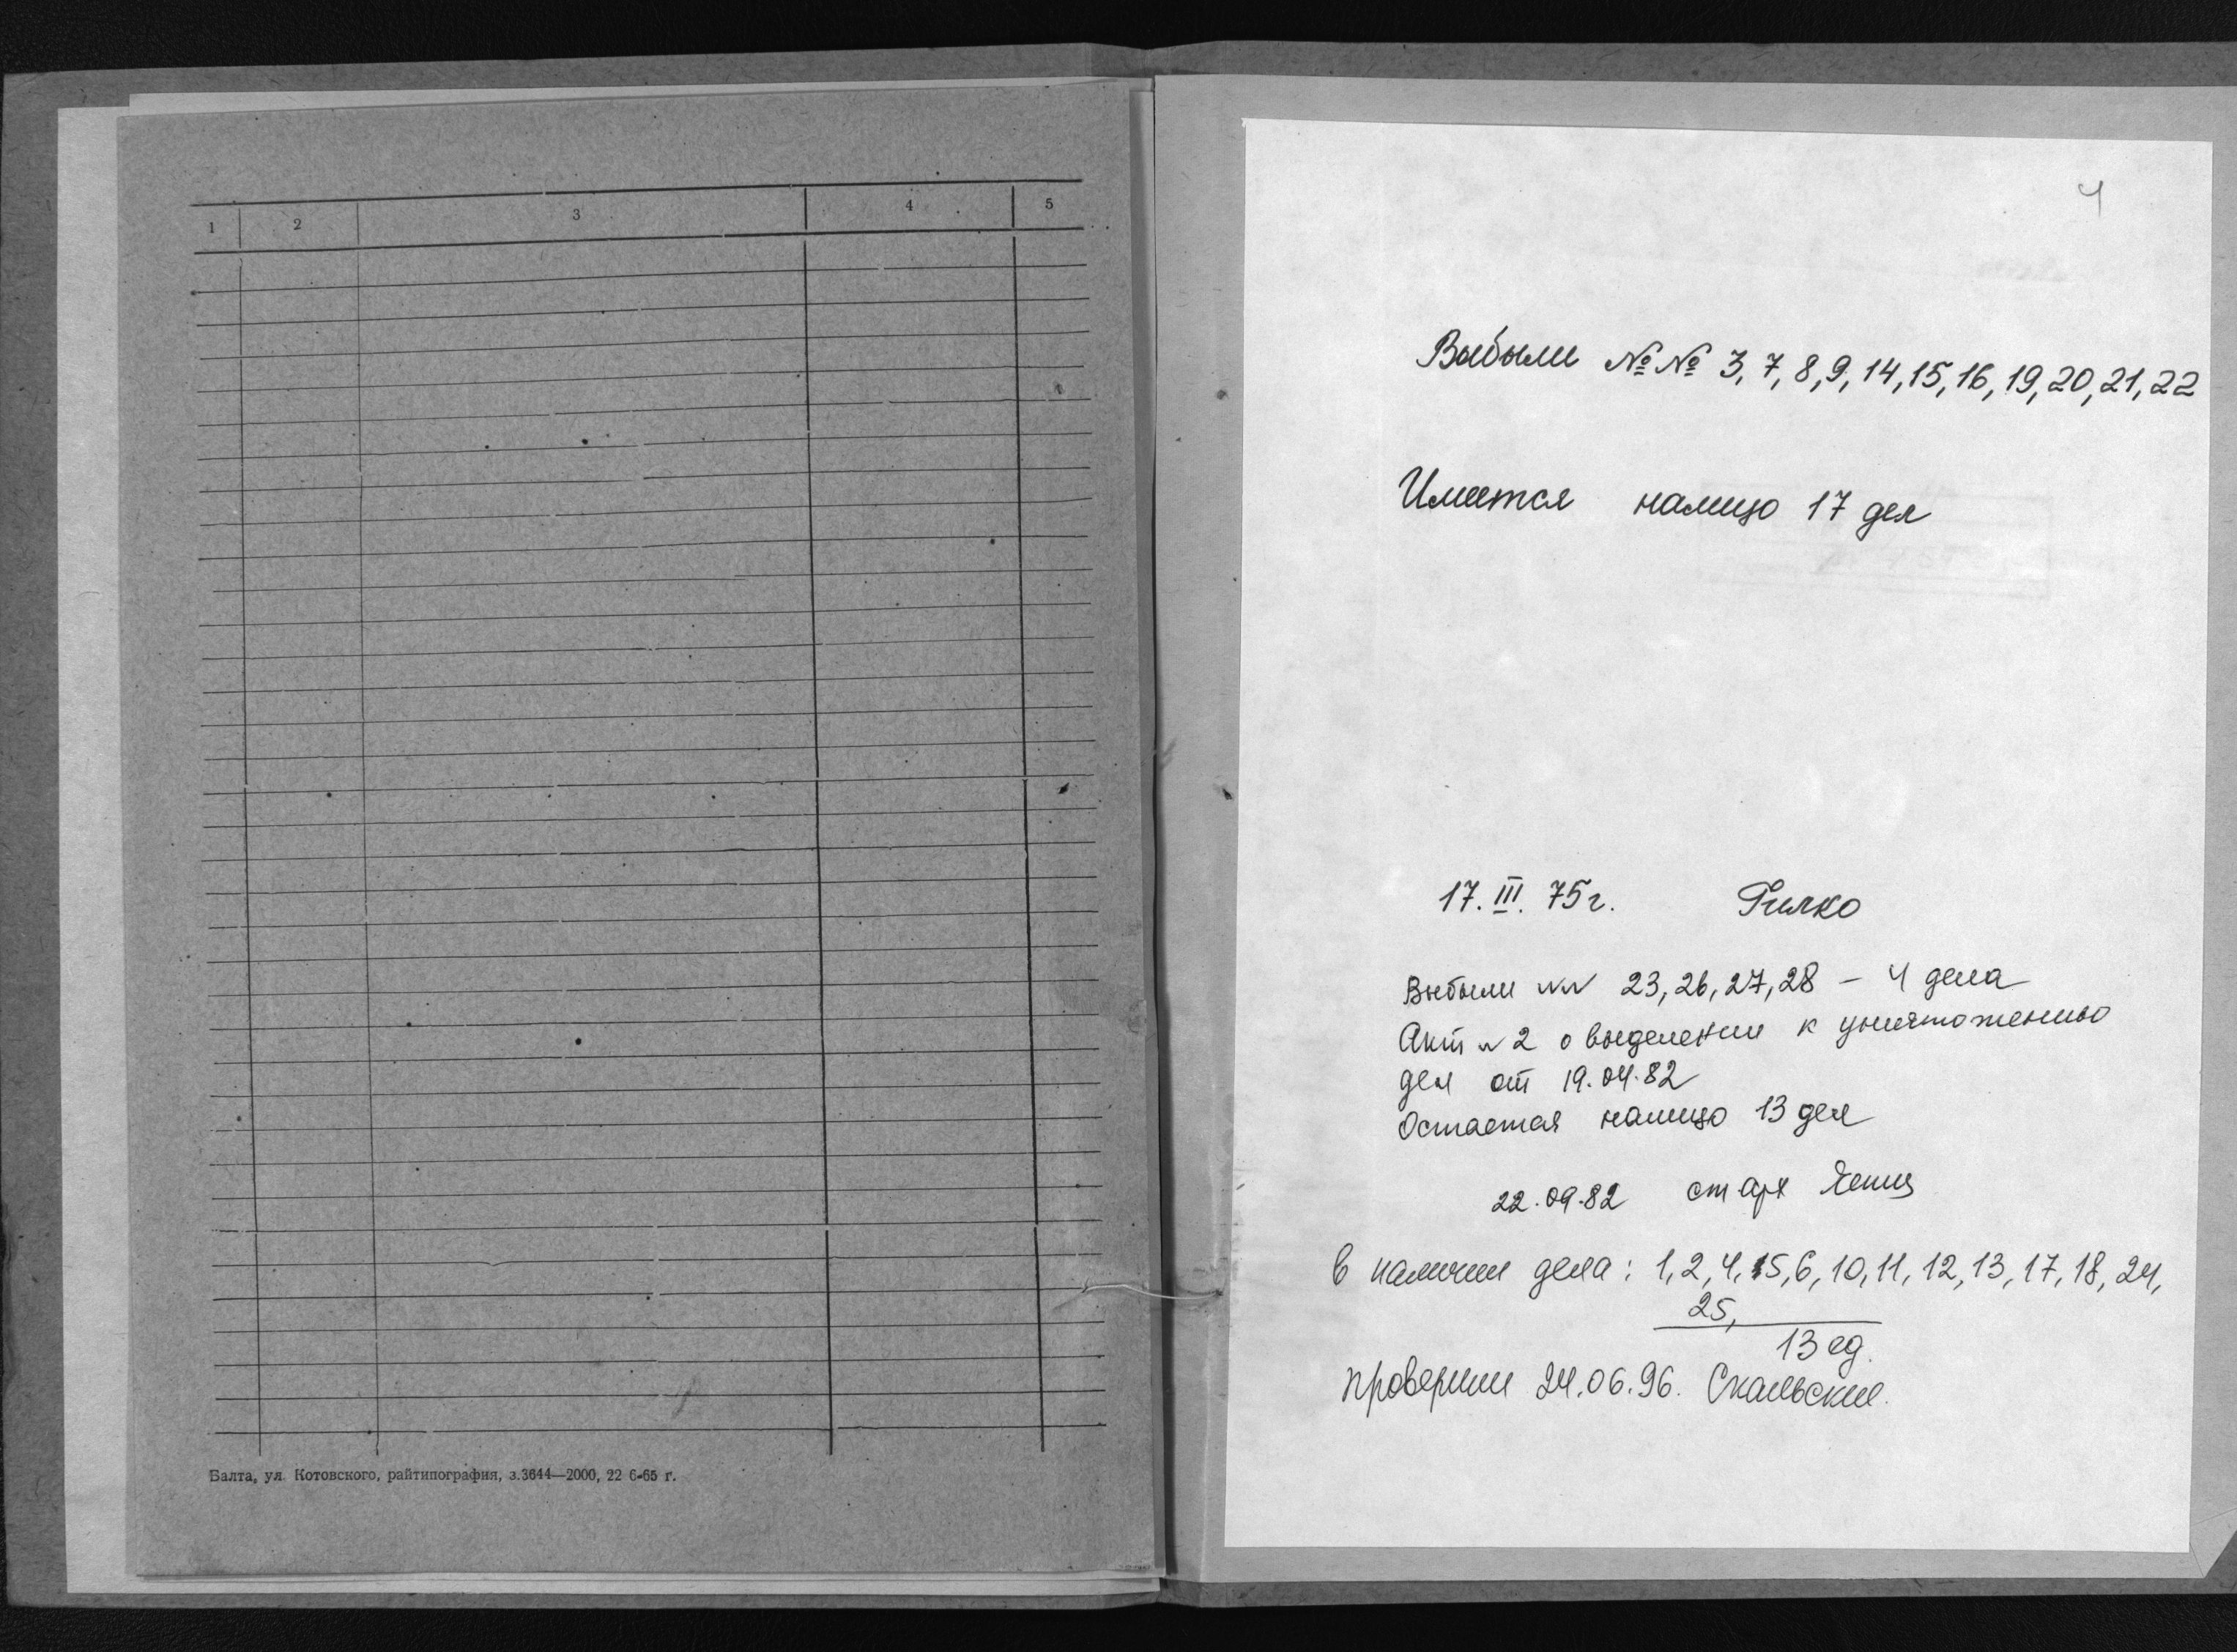 1 2 3 4 5
Балта, ул. Котовского, райтипография, з.3644—2000, 22 6-65 г.
4
Выбыли №№ 3, 7, 8, 9, 14, 15, 16, 19, 20, 21, 22
Имеется налицо 17 дел
17. III. 75 г. Гилко
Выбыли №№ 23, 26, 27, 28 – 4 дела
Акт № 2 о выделении к уничтожению
дел от 19.04.82
Остается налицо 13 дел
22.09.82 ст арх
В наличии дела: 1, 2, 4, 5, 6, 10, 11, 12, 13, 17, 18, 24,
25,
13 ед.
проверили 24.06.96. Скальский.